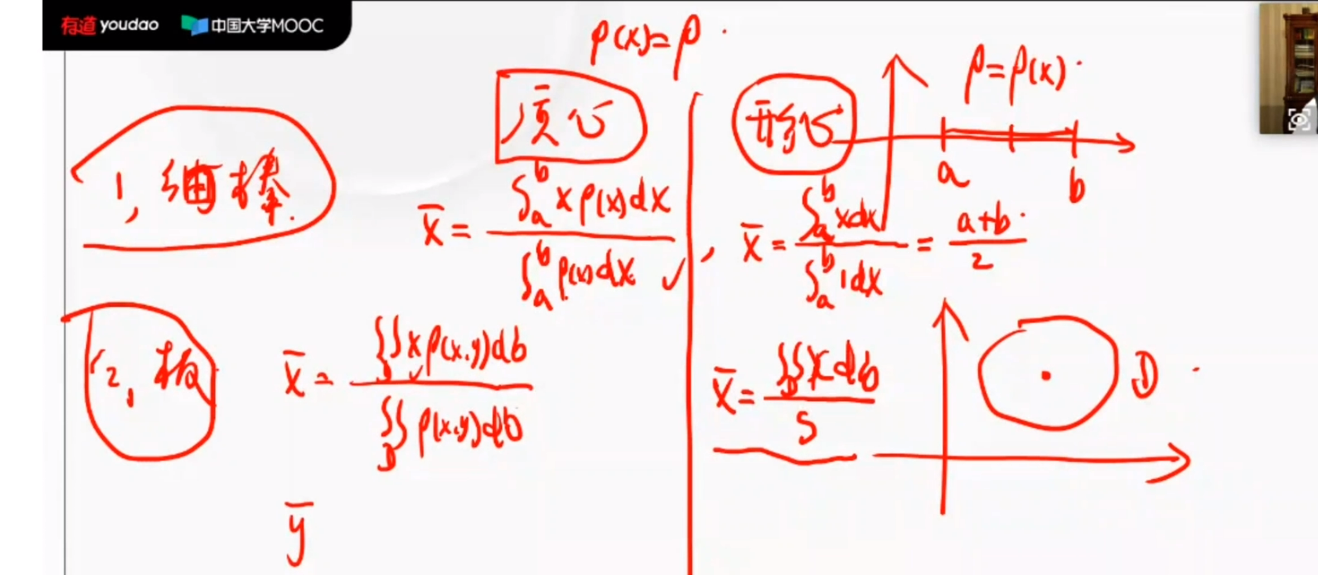 有道 youdao 中国大学MOOC
ρ(x)=ρ
质心
形心
ρ=ρ(x)
a b
1, 细棒
x̄ = ∫_a^b xρ(x)dx / ∫_a^b ρ(x)dx ✓,
x̄ = ∫_a^b xdx / ∫_a^b 1dx = a+b / 2
2, 板
x̄ = ∬_D xρ(x,y)dσ / ∬_D ρ(x,y)dσ
x̄ = ∬_D xdσ / S
D
ȳ